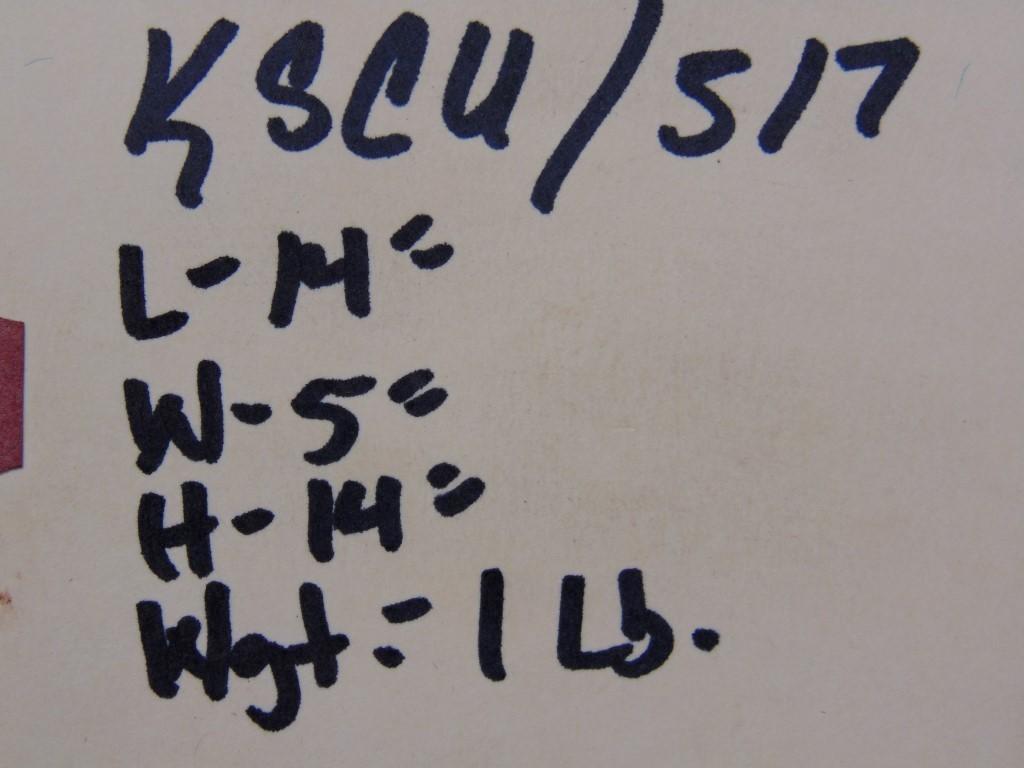 KSCU/517
L- 14"
W- 5"
H- 14"
Wgt: 1 Lb.